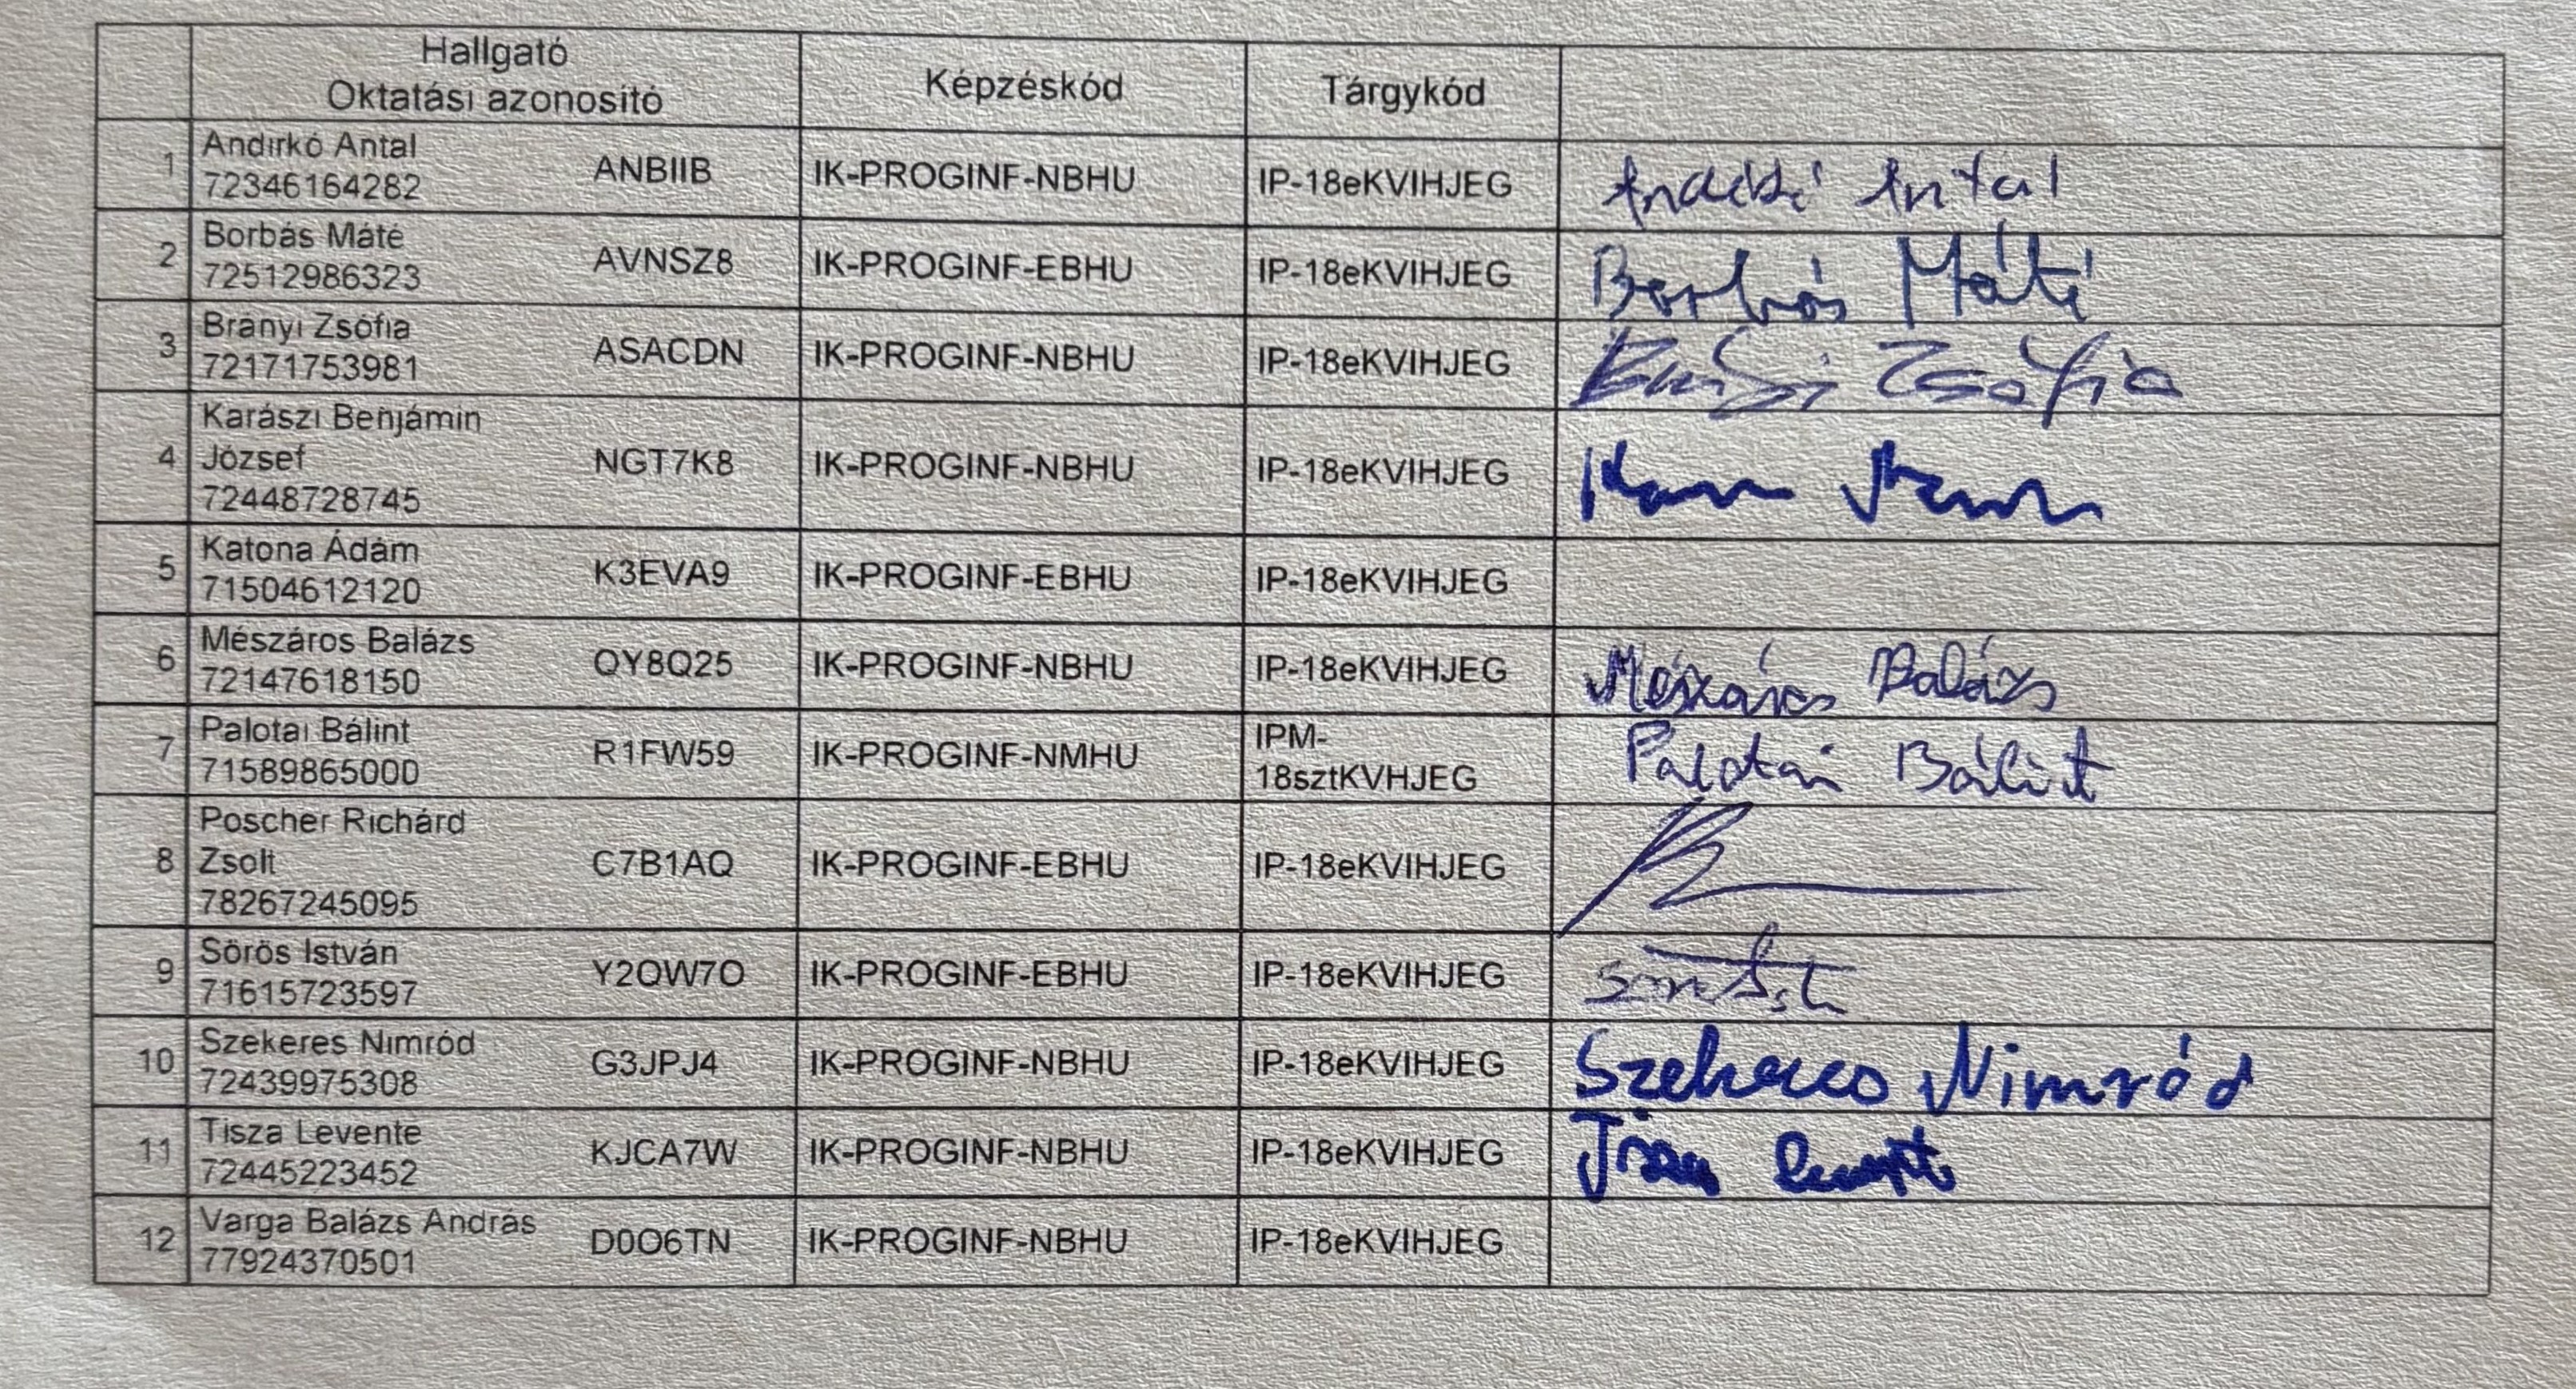 Hallgató
Oktatási azonosító Képzéskód Tárgykód
1 Andirkó Antal
72346164282 ANBIIB IK-PROGINF-NBHU IP-18eKVIHJEG Antal
2 Borbás Máté
72512986323 AVNSZ8 IK-PROGINF-EBHU IP-18eKVIHJEG Borbás Máté
3 Branyi Zsófia
72171753981 ASACDN IK-PROGINF-NBHU IP-18eKVIHJEG Zsófia
4 Karászi Benjámin
József
72448728745 NGT7K8 IK-PROGINF-NBHU IP-18eKVIHJEG
5 Katona Ádám
71504612120 K3EVA9 IK-PROGINF-EBHU IP-18eKVIHJEG
6 Mészáros Balázs
72147618150 QY8Q25 IK-PROGINF-NBHU IP-18eKVIHJEG Mészáros Balázs
7 Palotai Bálint
71589865000 R1FW59 IK-PROGINF-NMHU IPM-
18sztKVHJEG Palotai Bálint
8 Poscher Richárd
Zsolt
78267245095 C7B1AQ IK-PROGINF-EBHU IP-18eKVIHJEG
9 Sörös István
71615723597 Y2QW7O IK-PROGINF-EBHU IP-18eKVIHJEG
10 Szekeres Nimród
72439975308 G3JPJ4 IK-PROGINF-NBHU IP-18eKVIHJEG Szekeres Nimród
11 Tisza Levente
72445223452 KJCA7W IK-PROGINF-NBHU IP-18eKVIHJEG
12 Varga Balázs András
77924370501 D0O6TN IK-PROGINF-NBHU IP-18eKVIHJEG